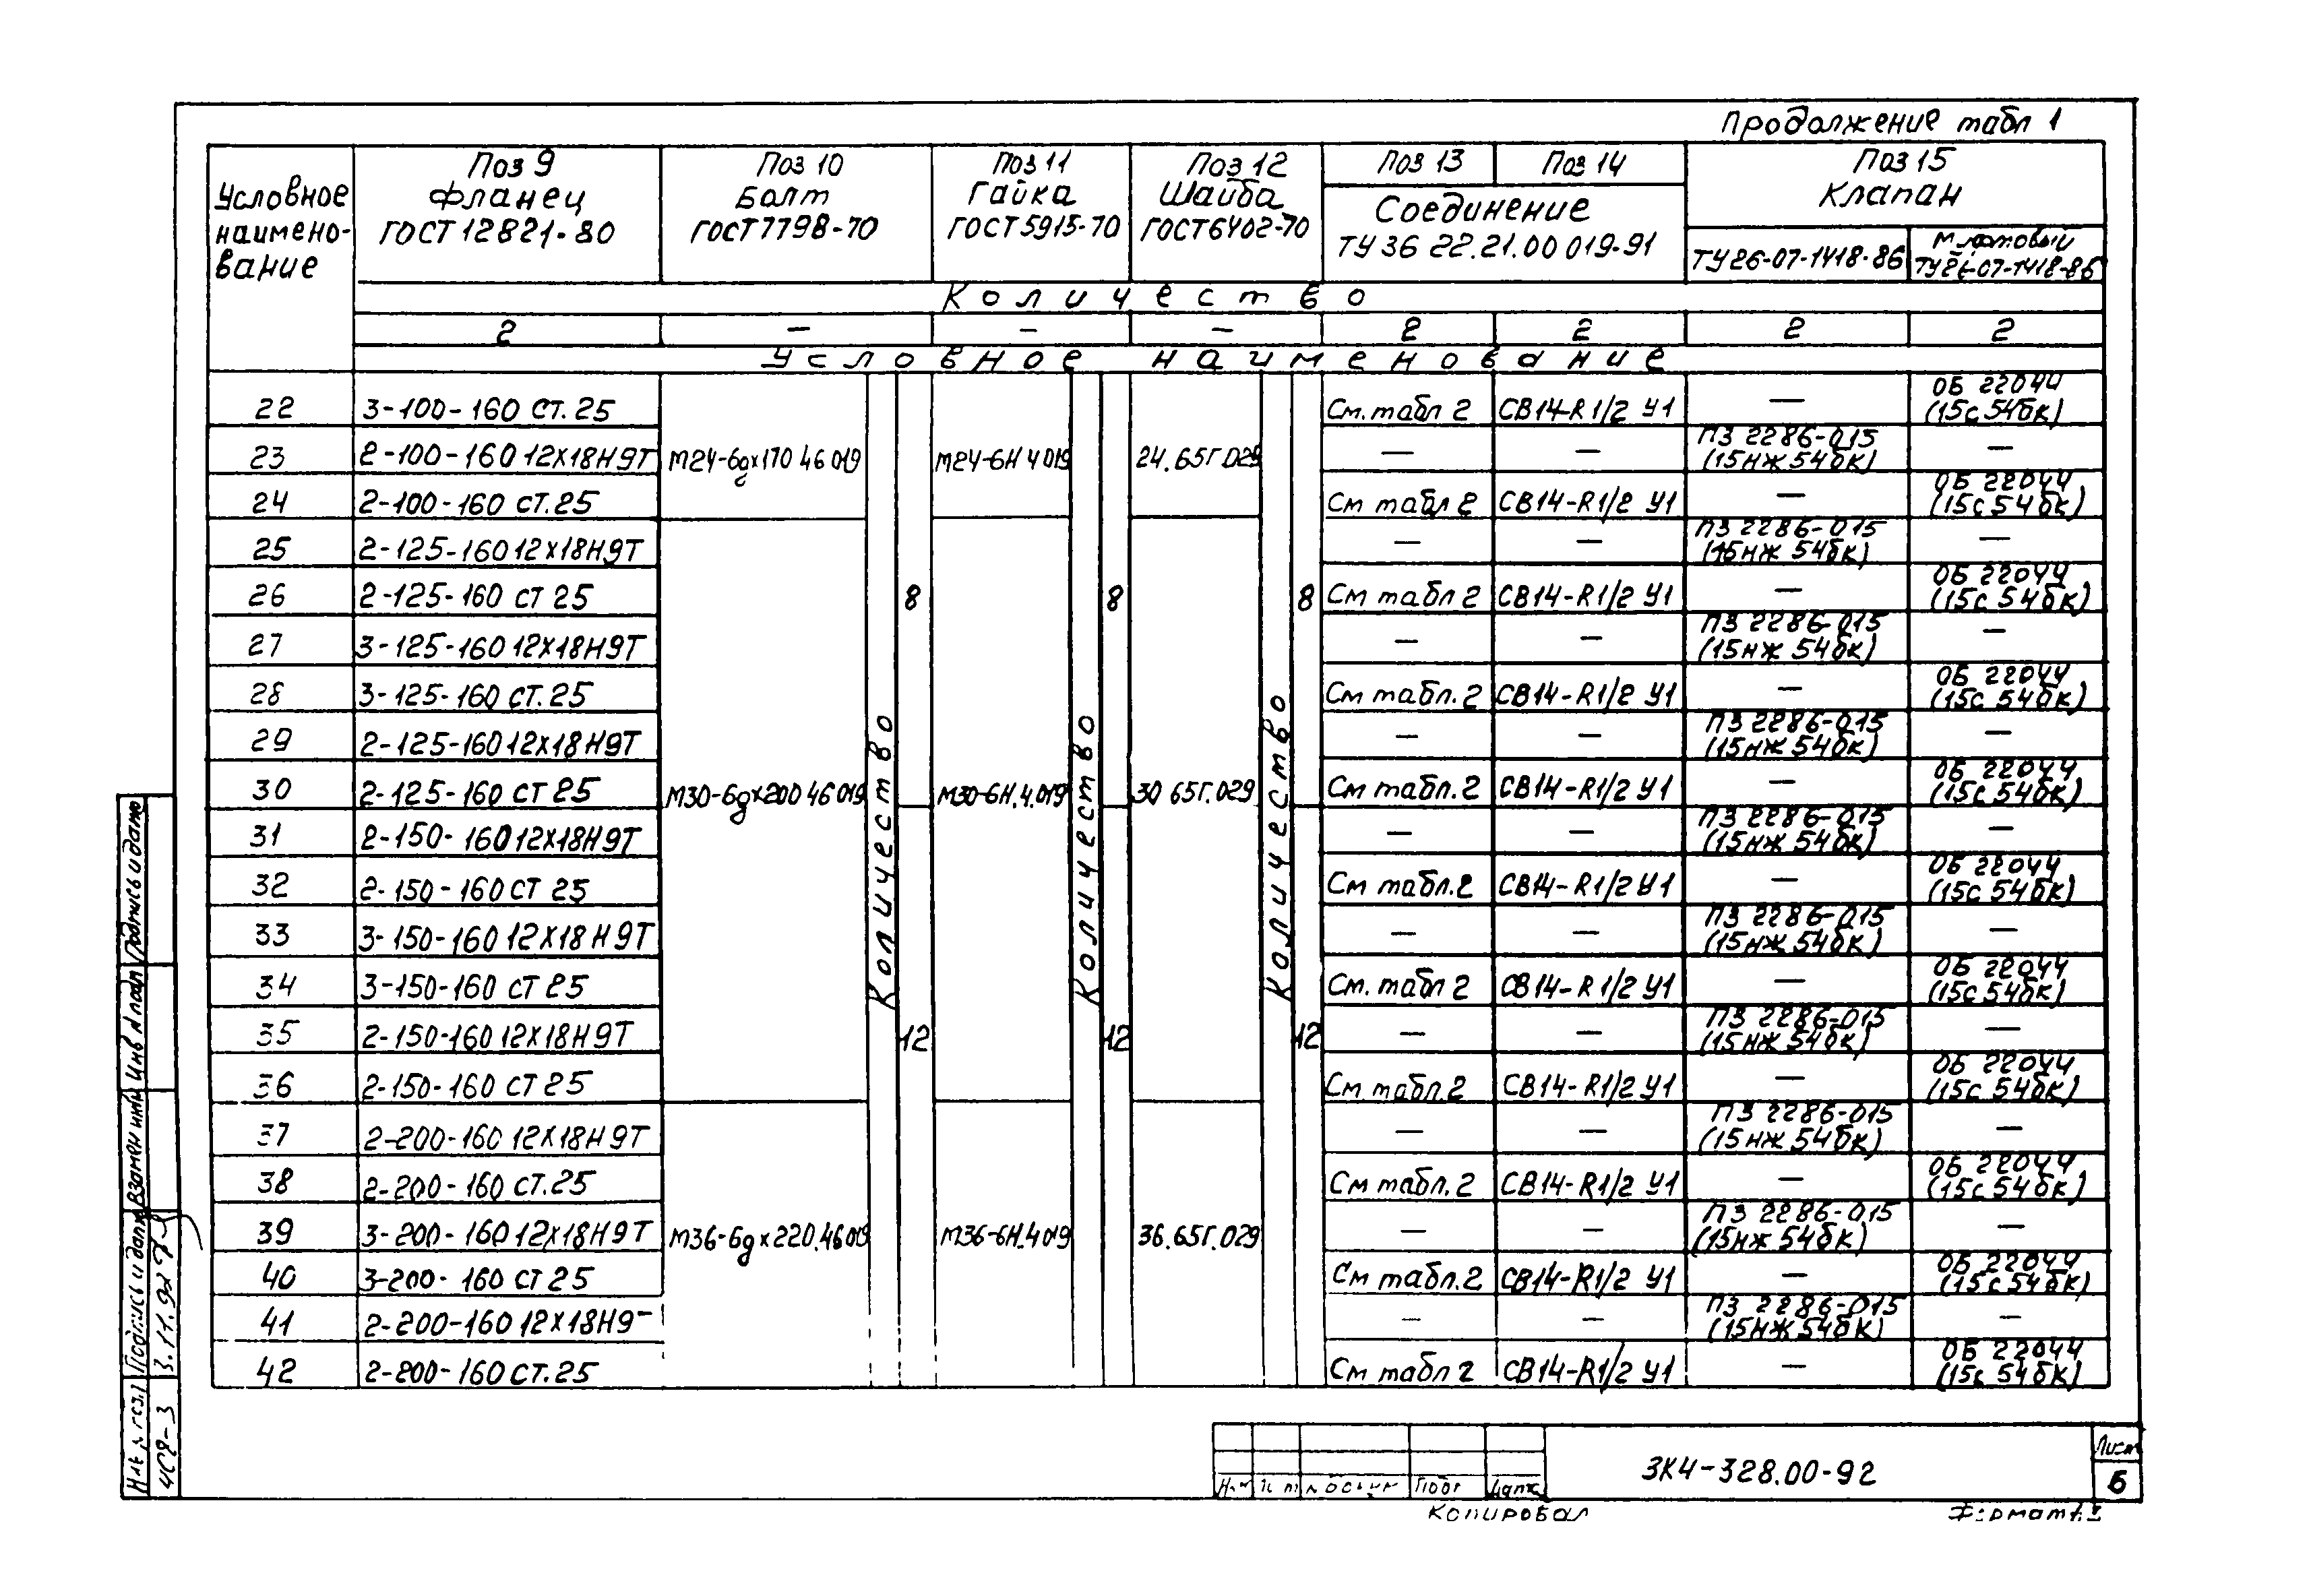 Продолжение табл 1
Условное наимено- вание
Поз 9 Фланец ГОСТ 12821-80
Поз 10 Болт ГОСТ 7798-70
Поз 11 Гайка ГОСТ 5915-70
Поз 12 Шайба ГОСТ 6402-70
Поз 13 Поз 14
Соединение
ТУ 36 22.21.00 019-91
Поз 15
Клапан
ТУ 26-07-1418-86
ТУ 26-07-1418-86
Количество
2 — — — 2 2 2 2
Условное наименование
22 3-100-160 ст.25 См. табл 2 СВ14-R1/2 У1 — ОБ 22044 (15с 54бк)
23 2-100-160 12Х18Н9Т М24-6gх170 46 019 М24-6Н 4 019 24.65Г.029 — — ПЗ 2286-015 (15нж 54бк) —
24 2-100-160 ст.25 См табл 2 СВ14-R1/2 У1 — ОБ 22044 (15с 54бк)
25 2-125-160 12Х18Н9Т — — ПЗ 2286-015 (15нж 54бк) —
26 2-125-160 ст 25 8 8 8 См табл 2 СВ14-R1/2 У1 — ОБ 22044 (15с 54бк)
27 3-125-160 12Х18Н9Т — — ПЗ 2286-015 (15нж 54бк) —
28 3-125-160 ст.25 См табл.2 СВ14-R1/2 У1 — ОБ 22044 (15с 54бк)
29 2-125-160 12Х18Н9Т — — ПЗ 2286-015 (15нж 54бк) —
30 2-125-160 ст 25 М30-6gх200 46 019 Количество М30-6Н.4.019 Количество 30 65Г.029 Количество См табл.2 СВ14-R1/2 У1 — ОБ 22044 (15с 54бк)
31 2-150-160 12Х18Н9Т — — ПЗ 2286-015 (15нж 54бк) —
32 2-150-160 ст 25 См табл.2 СВ14-R1/2 У1 — ОБ 22044 (15с 54бк)
33 3-150-160 12Х18Н9Т — — ПЗ 2286-015 (15нж 54бк) —
34 3-150-160 ст 25 См. табл 2 СВ14-R1/2 У1 — ОБ 22044 (15с 54бк)
35 2-150-160 12Х18Н9Т 12 12 12 — — ПЗ 2286-015 (15нж 54бк) —
36 2-150-160 ст 25 См табл.2 СВ14-R1/2 У1 — ОБ 22044 (15с 54бк)
37 2-200-160 12Х18Н9Т — — ПЗ 2286-015 (15нж 54бк) —
38 2-200-160 ст.25 См табл.2 СВ14-R1/2 У1 — ОБ 22044 (15с 54бк)
39 3-200-160 12Х18Н9Т М36-6gх220.46 019 М36-6Н.4 019 36.65Г.029 — — ПЗ 2286-015 (15нж 54бк) —
40 3-200-160 ст 25 См табл.2 СВ14-R1/2 У1 — ОБ 22044 (15с 54бк)
41 2-200-160 12Х18Н9 — — ПЗ 2286-015 (15нж 54бк) —
42 2-200-160 ст.25 См табл 2 СВ14-R1/2 У1 — ОБ 22044 (15с 54бк)
Подпись и дата
Инв N подл
Взамен инв
Подпись и дата
3.11.92
Лист
6
3К4-328.00-92
Копировал
Формат